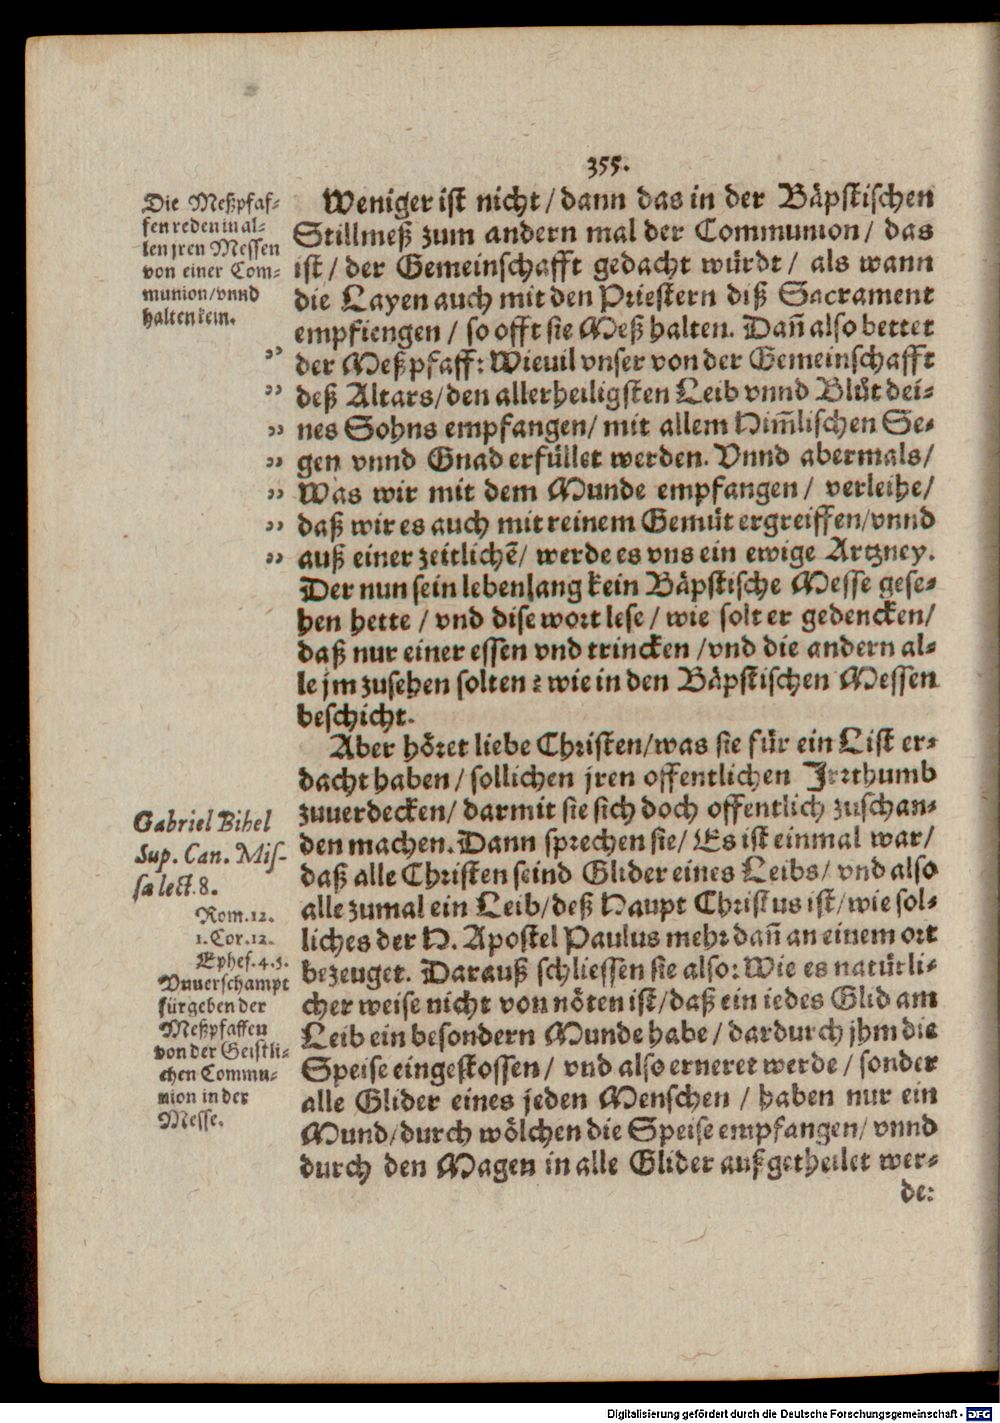 355.
Die Meßpfaf-
fen reden in al-
len jren Messen
von einer Com-
munion/vnnd
halten kein.
Weniger ist nicht/dann das in der Bäpstischen
Stillmeß zum andern mal der Communion/ das
ist/ der Gemeinschafft gedacht würdt/ als wann
die Layen auch mit den Priestern diß Sacrament
empfiengen/ so offt sie Meß halten. Dañ also bettet
der Meßpfaff: Wieuil vnser von der Gemeinschafft
deß Altars/den allerheiligsten Leib vnnd Blůt dei-
nes Sohns empfangen/ mit allem Him̃lischen Se-
gen vnnd Gnad erfüllet werden. Vnnd abermals/
Was wir mit dem Munde empfangen/ verleihe/
daß wir es auch mit reinem Gemüt ergreiffen/vnnd
auß einer zeitlichẽ/ werde es vns ein ewige Artzney.
Der nun sein lebenlang kein Bäpstische Messe gese-
hen hette/ vnd dise wort lese/ wie solt er gedencken/
daß nur einer essen vnd trincken/vnd die andern al-
le jm zusehen solten? wie in den Bäpstischen Messen
beschicht.
Aber höret liebe Christen/was sie für ein List er-
dacht haben/ sollichen jren offentlichen Jrrthumb
zuuerdecken/ darmit sie sich doch offentlich zuschan-
den machen. Dann sprechen sie/ Es ist einmal war/
daß alle Christen seind Glider eines Leibs/ vnd also
alle zumal ein Leib/deß Haupt Christus ist/wie sol-
liches der H. Apostel Paulus mehr dañ an einem ort
bezeuget. Darauß schliessen sie also: Wie es natürli-
cher weise nicht von nöten ist/daß ein iedes Glid am
Leib ein besondern Munde habe/ dardurch jhm die
Speise eingestossen/ vnd also erneret werde/ sonder
alle Glider eines jeden Menschen/ haben nur ein
Mund/durch wölchen die Speise empfangen/ vnnd
durch den Magen in alle Glider außgetheilet wer-
de:
Gabriel Bihel
Sup. Can. Mis-
sa lect. 8.
Rom. 12.
1. Cor. 12.
Ephes. 4. 5.
Vnuerschampt
fürgeben der
Meßpfaffen
von der Geistli-
chen Commu-
nion in der
Messe.
Digitalisierung gefördert durch die Deutsche Forschungsgemeinschaft - DFG